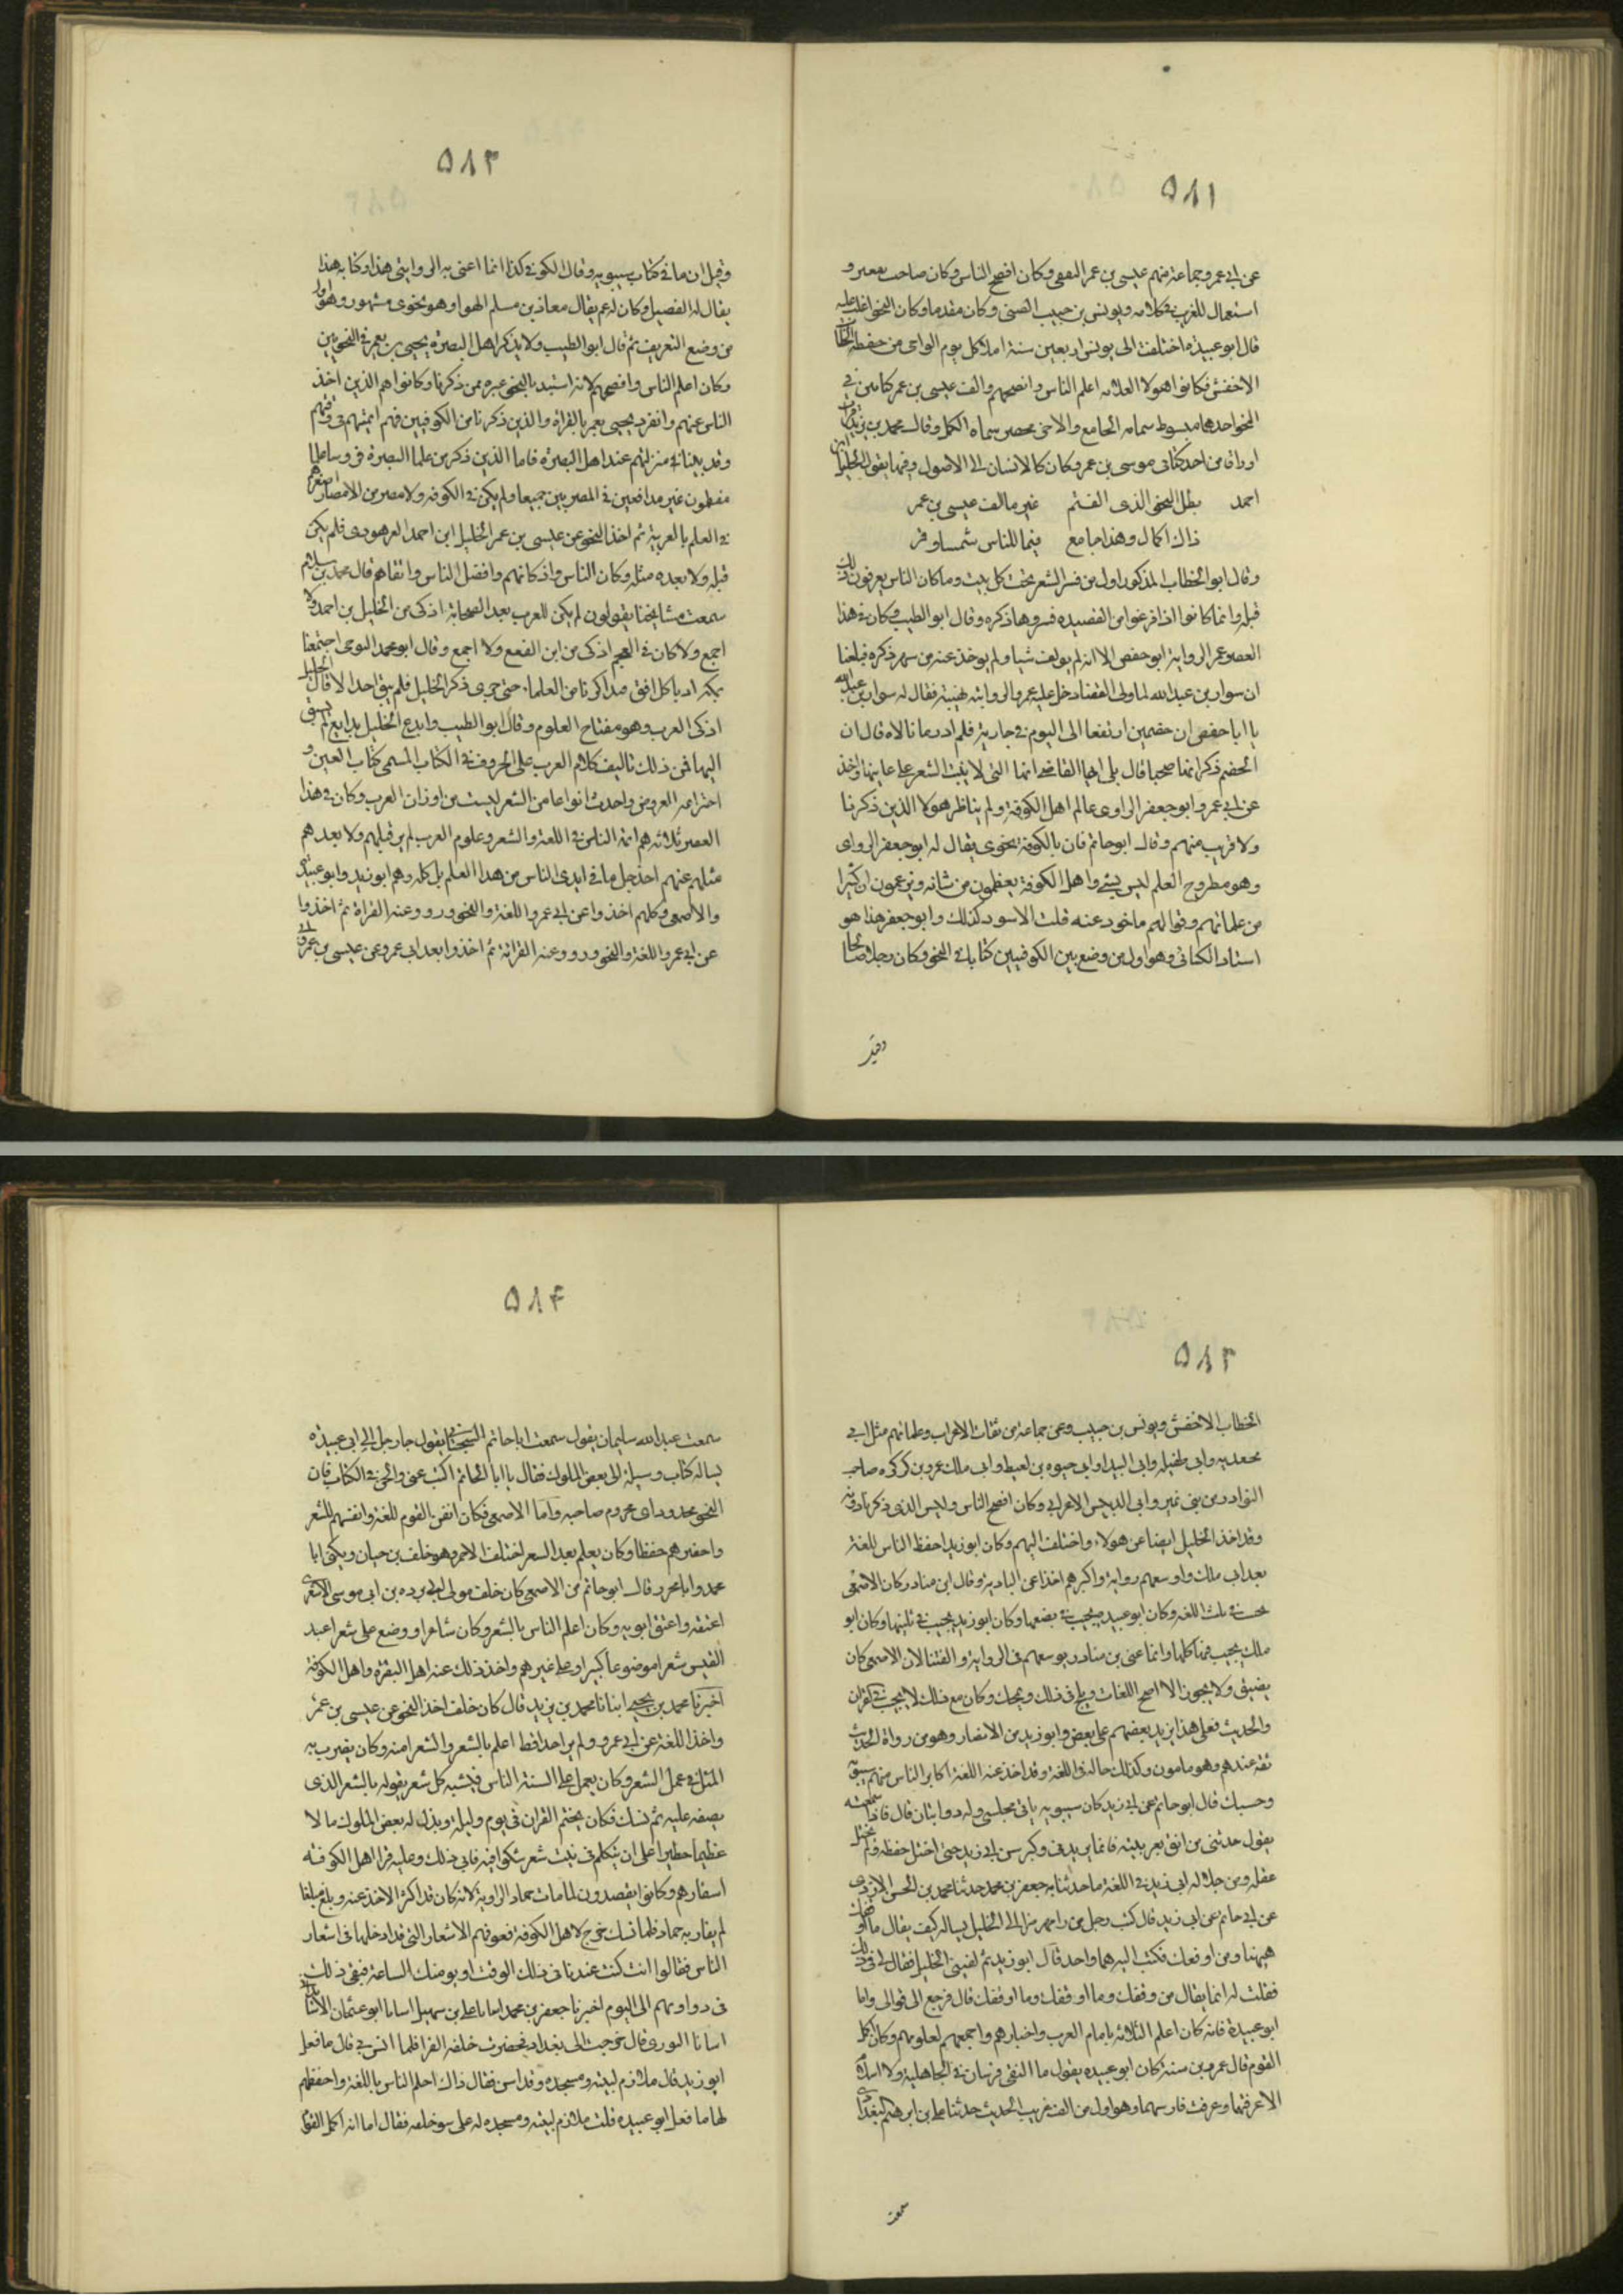 ٥٨١
عن ابي عمرو جماعة منهم عيسى بن عمر الثقفي وكان افصح الناس وكان صاحب تقعير و
استعمال للغريب في كلامه ويونس بن حبيب الضبي وكان مقدما وكان النحو اغلب عليه
قال ابو عبيدة اختلفت الى يونس اربعين سنة املا كل يوم الواحي من حفظه
الاخفش فكانوا هولا الثلاثه اعلم الناس وافصحهم والف عيسى بن عمر كتابين في
النحو احدهما مبسوط سماه الجامع والاخر مختصر سماه المكمل وقال محمد بن يزيد
اوراقا من احد كتابي عيسى بن عمر وكان كالاشارة الى الاصول وفيهما يقول الخليل بن
احمد بطل النحو الذي الفتم غير ما الف عيسى بن عمر
ذاك اكمال وهذا جامع فهما للناس شمس وقمر
وقال ابو الخطاب المذكور اول من فسر الشعر تحت كل بيت وما كان الناس يعرفون ذلك
قبله وانما كانوا اذا فرغوا من القصيده فسروها ذكره وقال ابو الطيب وكان في هذا
العصر عمر الراوية ابو حفص الا انه لم يولف شيا ولم يوخذ عنه من شهر ذكره فبلغنا
ان سوار بن عبد الله لما ولى القضا دخل عليه عمر الراوية ليهنيه فقال له سوار بن عبد الله
يا ابا حفص ان خصمين ارتفعا الى اليوم في جارية فلم ادر ما قالاه قال ان
الخصم ذكر انها ضهيا قال بلى ايها القاضي انها التي لا ينبت الشعر على عانتها واخذ
عن ابي عمرو ابو جعفر الراوى عالم اهل الكوفة ولم يناظر هولا الذين ذكرنا
ولا قريب منهم وقال ابو حاتم كان بالكوفة نحوى يقال له ابو جعفر الرواى
وهو مطروح العلم ليس بشي واهل الكوفة يعظمون من شانه ويزعمون ان كثيرا
من علمائهم وقرائهم ماخود عنه قلت الاسود كذلك وابو جعفر هذا هو
استاد الكسائي وهو اول من وضع بين الكوفيين كتابا في النحو وكان رجلا صالحا
وقيل
٥٨٢
وقيل ان ما في كتاب سيبويه وقال الكوفي كذا انما اعني به الرواسي هذا وكتابه هذا
يقال له الفصيل وكان له عم يقال معاذ بن مسلم الهوا وهو نحوى مشهور وهو اول
من وضع التصريف ثم قال ابو الطيب ولا يذكر اهل البصرة يحيى بن يعمر في النحويين
وكان اعلم الناس وافصحهم لانه استبد بالنحو غيره ممن ذكرنا وكانوا هم الذين اخذ
الناس عنهم وانفرد يحيى بن يعمر بالقراة والذين ذكرنا من الكوفيين فهم ائمتهم في وقتهم
وقد بينا في منزلتهم عند اهل البصرة فاما الذين ذكرنا من علما البصرة فروسا علما
معظمون غير مدافعين في المصرين جميعا ولم يكن في الكوفه ولا مصر من الامصار اصغرهم
في العلم بالعربية ثم اخذ النحو عن عيسى بن عمر الخليل ابن احمد الفرهودى فلم يكن
قبله ولا بعده مثله وكان الناس واذكاهم وافضل الناس واتقاهم قال محمد بن سلام
سمعت مشايخنا يقولون لم يكن للعرب بعد الصحابة اذكى من الخليل بن احمد ولا
اجمع ولا كان في العجم اذكى من ابن المقفع ولا اجمع وقال ابو محمد التوجي اجتمعنا
بمكة ادبا كل افق فتذاكرنا من العلما حتى جرى ذكر الخليل فلم يبق احدا الا قال الخليل
اذكى العرب وهو مفتاح العلوم وقال ابو الطيب وابدع الخليل بدايع لم يسبق
اليها فمن ذلك تاليف كلام العرب على الحروف في الكتاب المسمى كتاب العين و
اختراعه العروض واحدث انواعا من الشعر ليست من اوزان العرب وكان في هذا
العصر ثلاثه هم ائمة الناس في اللغة والشعر وعلوم العرب لم ير قبلهم ولا بعدهم
مثلهم عنهم اخذ جل ما في ايدى الناس من هذا العلم بل كله وهم ابو زيد وابو عبيدة
والاصمعي وكلهم اخذوا عن ابي عمرو اللغة والنحو ورووا عنه القراة ثم اخذوا
عن ابي عمرو اللغة والنحو ورووا عنه القرائة ثم اخذوا بعد ابي عمرو عن عيسى بن عمر
٥٨٣
الخطاب الاخفش ويونس بن حبيب وعن جماعة من ثقات الاعراب وعلمائهم مثل ابي
مهديه وابي طفيله وابي البيدا وابي حيوه بن لقيط وابي ملك عمرو بن كركره صاحب
النوادر من بني نمير وابي الدقيس الاعرابي وكان افصح الناس وليس الذي ذكرنا دونه
وقد اخذ الخليل ايضا عن هولاء واختلف اليهم وكان ابو زيد احفظ الناس للغة
بعد ابي ملك واوسعهم رواية واكثرهم اخذا عن البادية وقال ابن مناذر كان الاصمعي
يجيب في ثلث اللغة وكان ابو عبيده يجيب في نصفها وكان ابو زيد يجيب في ثلثيها وكان ابو
ملك يجيب فيها كلها وانما عنى بن مناذر توسعهم في الرواية والفتيا لان الاصمعي كان
يضيق ولا يجوز الا اصح اللغات ويلج في ذلك ويمحك وكان مع ذلك لا يجيب في القران
والحديث فعلى هذا يزيد بعضهم على بعض وابو زيد من الانصار وهو من رواة الحديث
ثقة عندهم وهو مامون وكذلك حاله في اللغة وقد اخذ عنه اللغة اكابر الناس منهم سيبويه
وحسبك قال ابو حاتم عن ابي زيد كان سيبويه ياتي مجلسي وله ذوابتان قال فاذا سمعته
يقول حدثني من اثق بعربيته فانما يريدني وكبر سن ابي زيد حتى اختل حفظه ولم يختل
عقله ومن جلالة ابي زيد في اللغة ما حدثنا به جعفر بن محمد حدثنا محمد بن الحسن الازدى
عن ابي حاتم عن ابي زيد قال كتب رجل من رامهرمز الى الخليل يساله كيف يقال ما اوقفك
هيهنا ومن اوقعك فكتب اليه هما واحد قال ابو زيد ثم لقيني الخليل فقال لي في ذلك
فقلت له انما يقال من وقفك وما اوقفك وما اوقفك قال فرجع الى قولى واما
ابو عبيدة فانه كان اعلم الثلاثه بايام العرب واخبارهم واجمعهم لعلومهم وكان اكمل
القوم قال عمر بن شبة كان ابو عبيده يقول ما التقى فرسان في الجاهلية ولا اسلام
الا عرفتهما وعرفت فارسهما وهو اول من الف غريب الحديث حدثنا علي بن ابرهيم البغدادى
سمعت
٥٨٤
سمعت عبد الله سليمان يقول سمعت ابا حاتم السجستاني يقول جا رجل الى ابي عبيدة
يساله كتاب وسيلة الى بعض الملوك فقال يا ابا الحاتم اكتب عني والحن في الكتاب فان
النحو محدود اى محروم صاحبه واما الاصمعي فكان اتقن القوم للغة واتقنهم للشعر
واحضرهم حفظا وكان يعلم بعد الشعر لخلف الاحمر وهو خلف بن حيان ويكنى ابا
محمد وابا محرز قال ابو حاتم عن الاصمعي كان خلف مولى لابي برده بن ابي موسى الاشعرى
اعتقه واعتق ابويه وكان اعلم الناس بالشعر وكان شاعرا ووضع على شعرا عبد
القيس شعرا موضوعا كبيرا وعلى غيرهم واخذ ذلك عنه اهل البصرة واهل الكوفة
اخبرنا محمد بن يحيى انبانا محمد بن يزيد قال كان خلف اخذ النحو عن عيسى بن عمر
واخذ اللغة عن ابي عمرو ولم ير احد اقط اعلم بالشعر والشعرا منه وكان يضرب به
المثل في عمل الشعر وكان يعمل على السنة الناس فيشبه كل شعر يقوله بالشعر الذي
يصفه عليه ثم نسك فكان يختم القران في يوم وليلة وبذل له بعض الملوك مالا
عظيما خطيرا على ان يتكلم في بيت شعر شكوا فيه فابى ذلك وعليه قرا اهل الكوفة
اسفارهم وكانوا يقصدون لما مات حماد الراوية لانه كان قد اكثر الاخذ عنه وبلغ مبلغا
لم يقاربه حماد فلما نسك خرج لاهل الكوفة فعرفهم الاشعار التي قد ادخلها في اشعار
الناس فقالوا انت كنت عندنا في ذلك الوقت اوثق منك الساعة فبقى ذلك
في دواوينهم الى اليوم اخبرنا جعفر بن محمد انبانا علي بن سهيل انبانا ابو عثمان
انبانا التوزى قال خرجت الى بغداد فحضرت حلقة الفرا فلما انس بي قال ما فعل
ابو زيد قلت ملازم لبيته ومسجده وقد اسن فقال ذاك اعلم الناس باللغة واحفظهم
لها ما فعل ابو عبيده قلت ملازم لبيته ومسجده له على سو خلقه فقال اما انه اكمل القوم